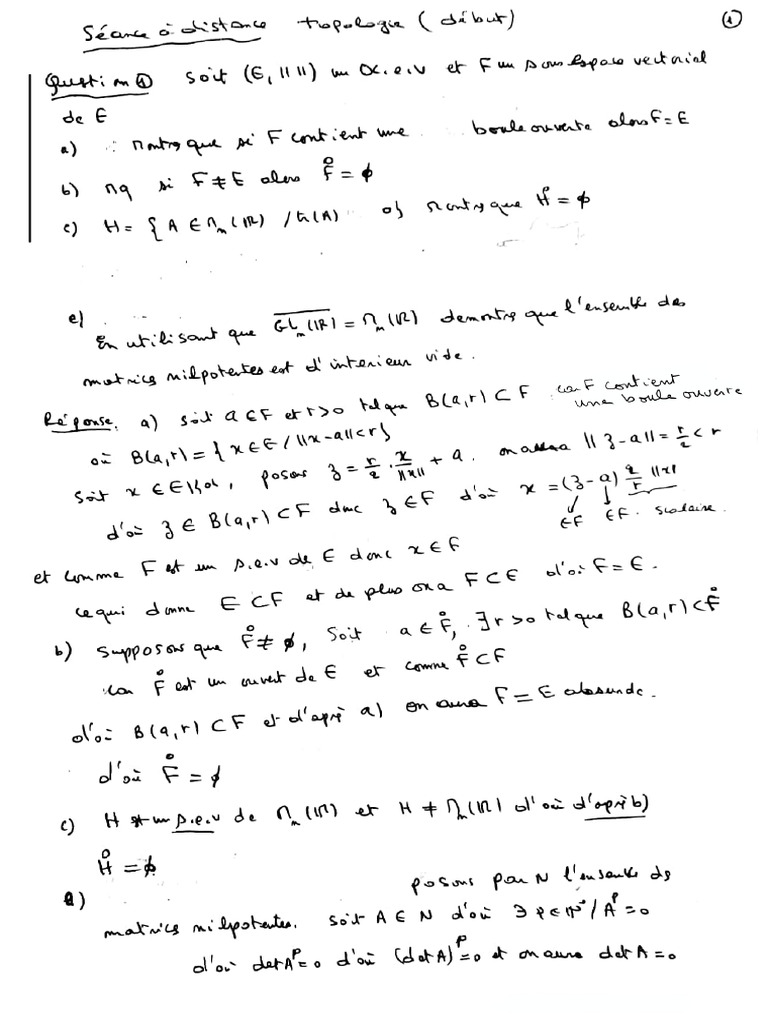 Séance à distance topologie (début) ①
Question ① Soit (E, || ||) un K.e.v et F un sous espace vectoriel
de E
a) : Montrer que si F contient une boule ouverte alors F = E
b) Mq si F ≠ E alors F̊ = ∅
c) H = { A ∈ Mₙ(IR) / tr(A) = 0} Montrer que H̊ = ∅
e)
En utilisant que \overline{GLₙ(IR)} = Mₙ(IR) démontrer que l'ensemble des
matrices nilpotentes est d'intérieur vide.
Réponse. a) Soit a ∈ F et r > 0 tel que B(a,r) ⊂ F car F contient
une boule ouverte
où B(a,r) = { x ∈ E / ||x-a|| < r}
Soit x ∈ E\{0}, posons z = r/2 · x/||x|| + a. on aura || z - a || = r/2 < r
d'où z ∈ B(a,r) ⊂ F donc z ∈ F d'où x = (z - a) 2/r ||x||
∈F ∈F. scalaire.
et comme F est un s.e.v de E donc x ∈ F
ce qui donne E ⊂ F et de plus on a F ⊂ E d'où F = E.
b) Supposons que F̊ ≠ ∅, Soit a ∈ F̊, ∃ r > 0 tel que B(a,r) ⊂ F̊
car F̊ est un ouvert de E et comme F̊ ⊂ F
d'où B(a,r) ⊂ F et d'après a) on aura F = E absurde.
d'où F̊ = ∅
c) H est un s.e.v de Mₙ(IR) et H ≠ Mₙ(IR) d'où d'après b)
H̊ = ∅.
e) posons par N l'ensemble des
matrices nilpotentes. Soit A ∈ N d'où ∃ p ∈ IN* / Aᵖ = 0
d'où det Aᵖ = 0 d'où (det A)ᵖ = 0 et on aura det A = 0